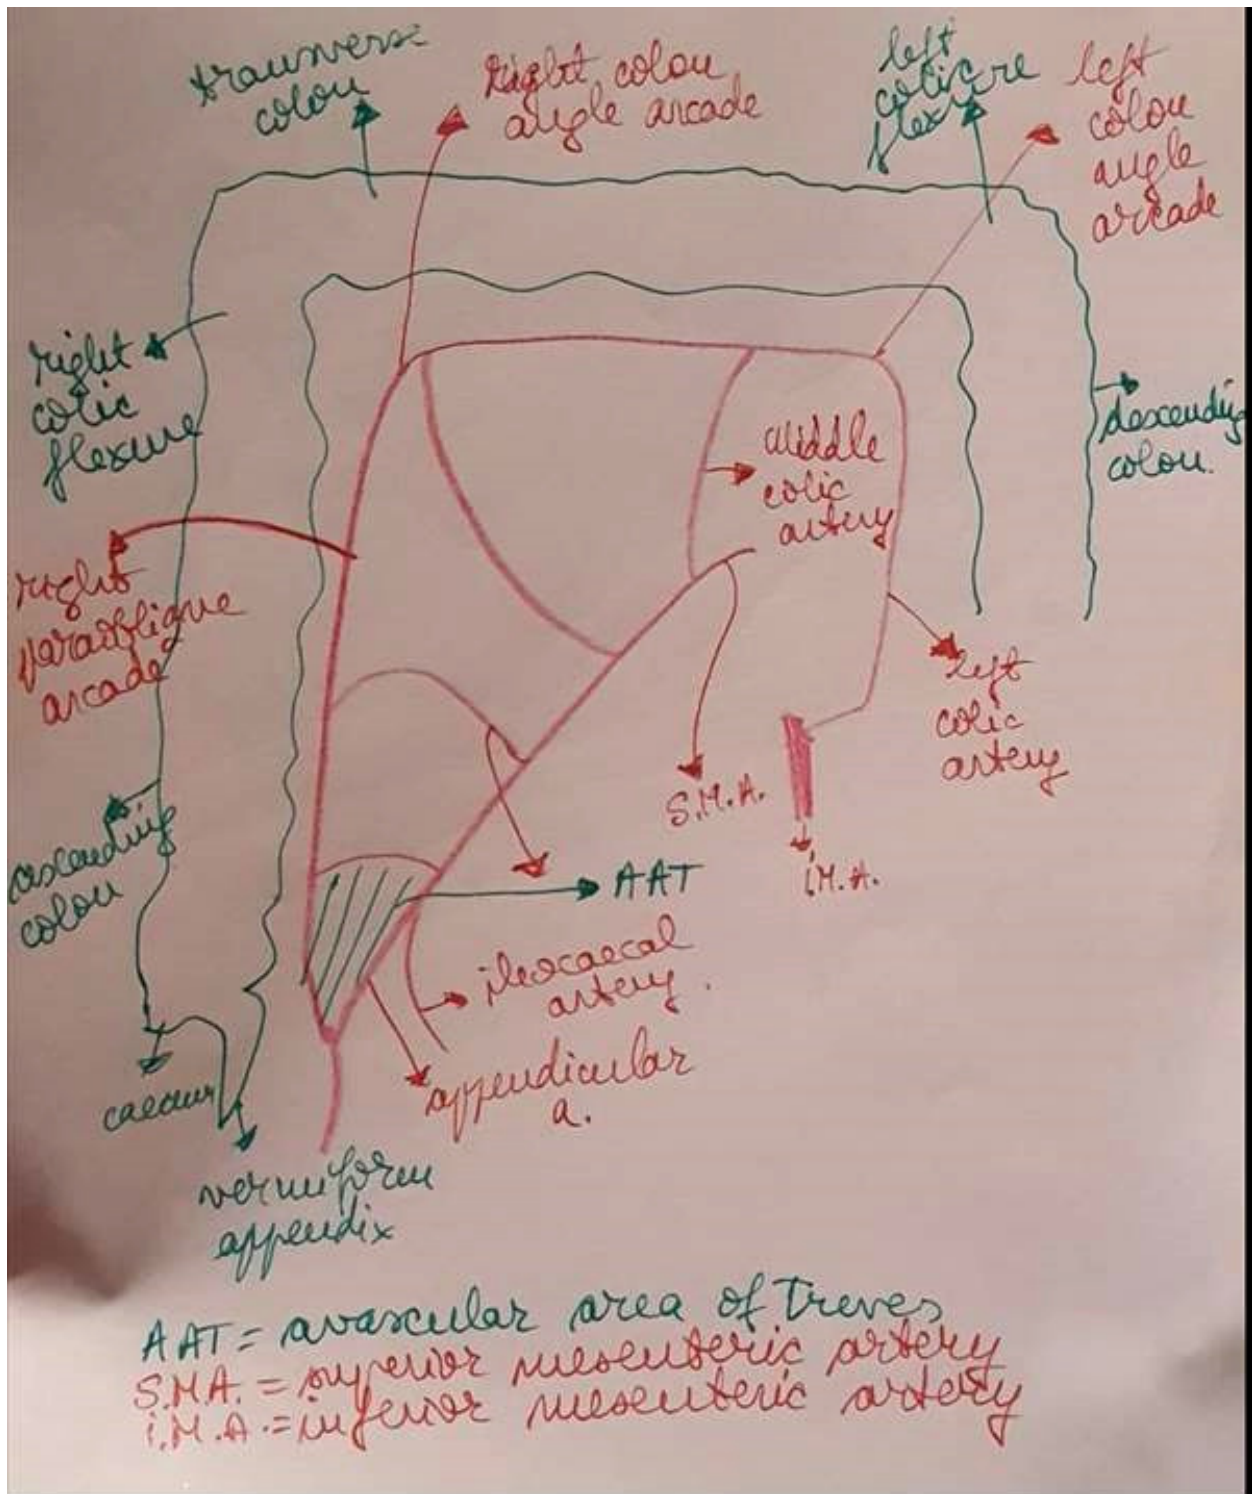 transverse
colon
Right colon
angle arcade
left
colic
flexure
left
colon
angle
arcade
right
colic
flexure
descending
colon.
middle
colic
artery
right
paraoblique
arcade
left
colic
artery
S.M.A.
i.M.A.
ascending
colon
AAT
ileocaecal
artery.
appendicular
a.
caecum
vermiform
appendix
AAT = avascular area of Treves
S.M.A. = superior mesenteric artery
i.M.A. = inferior mesenteric artery